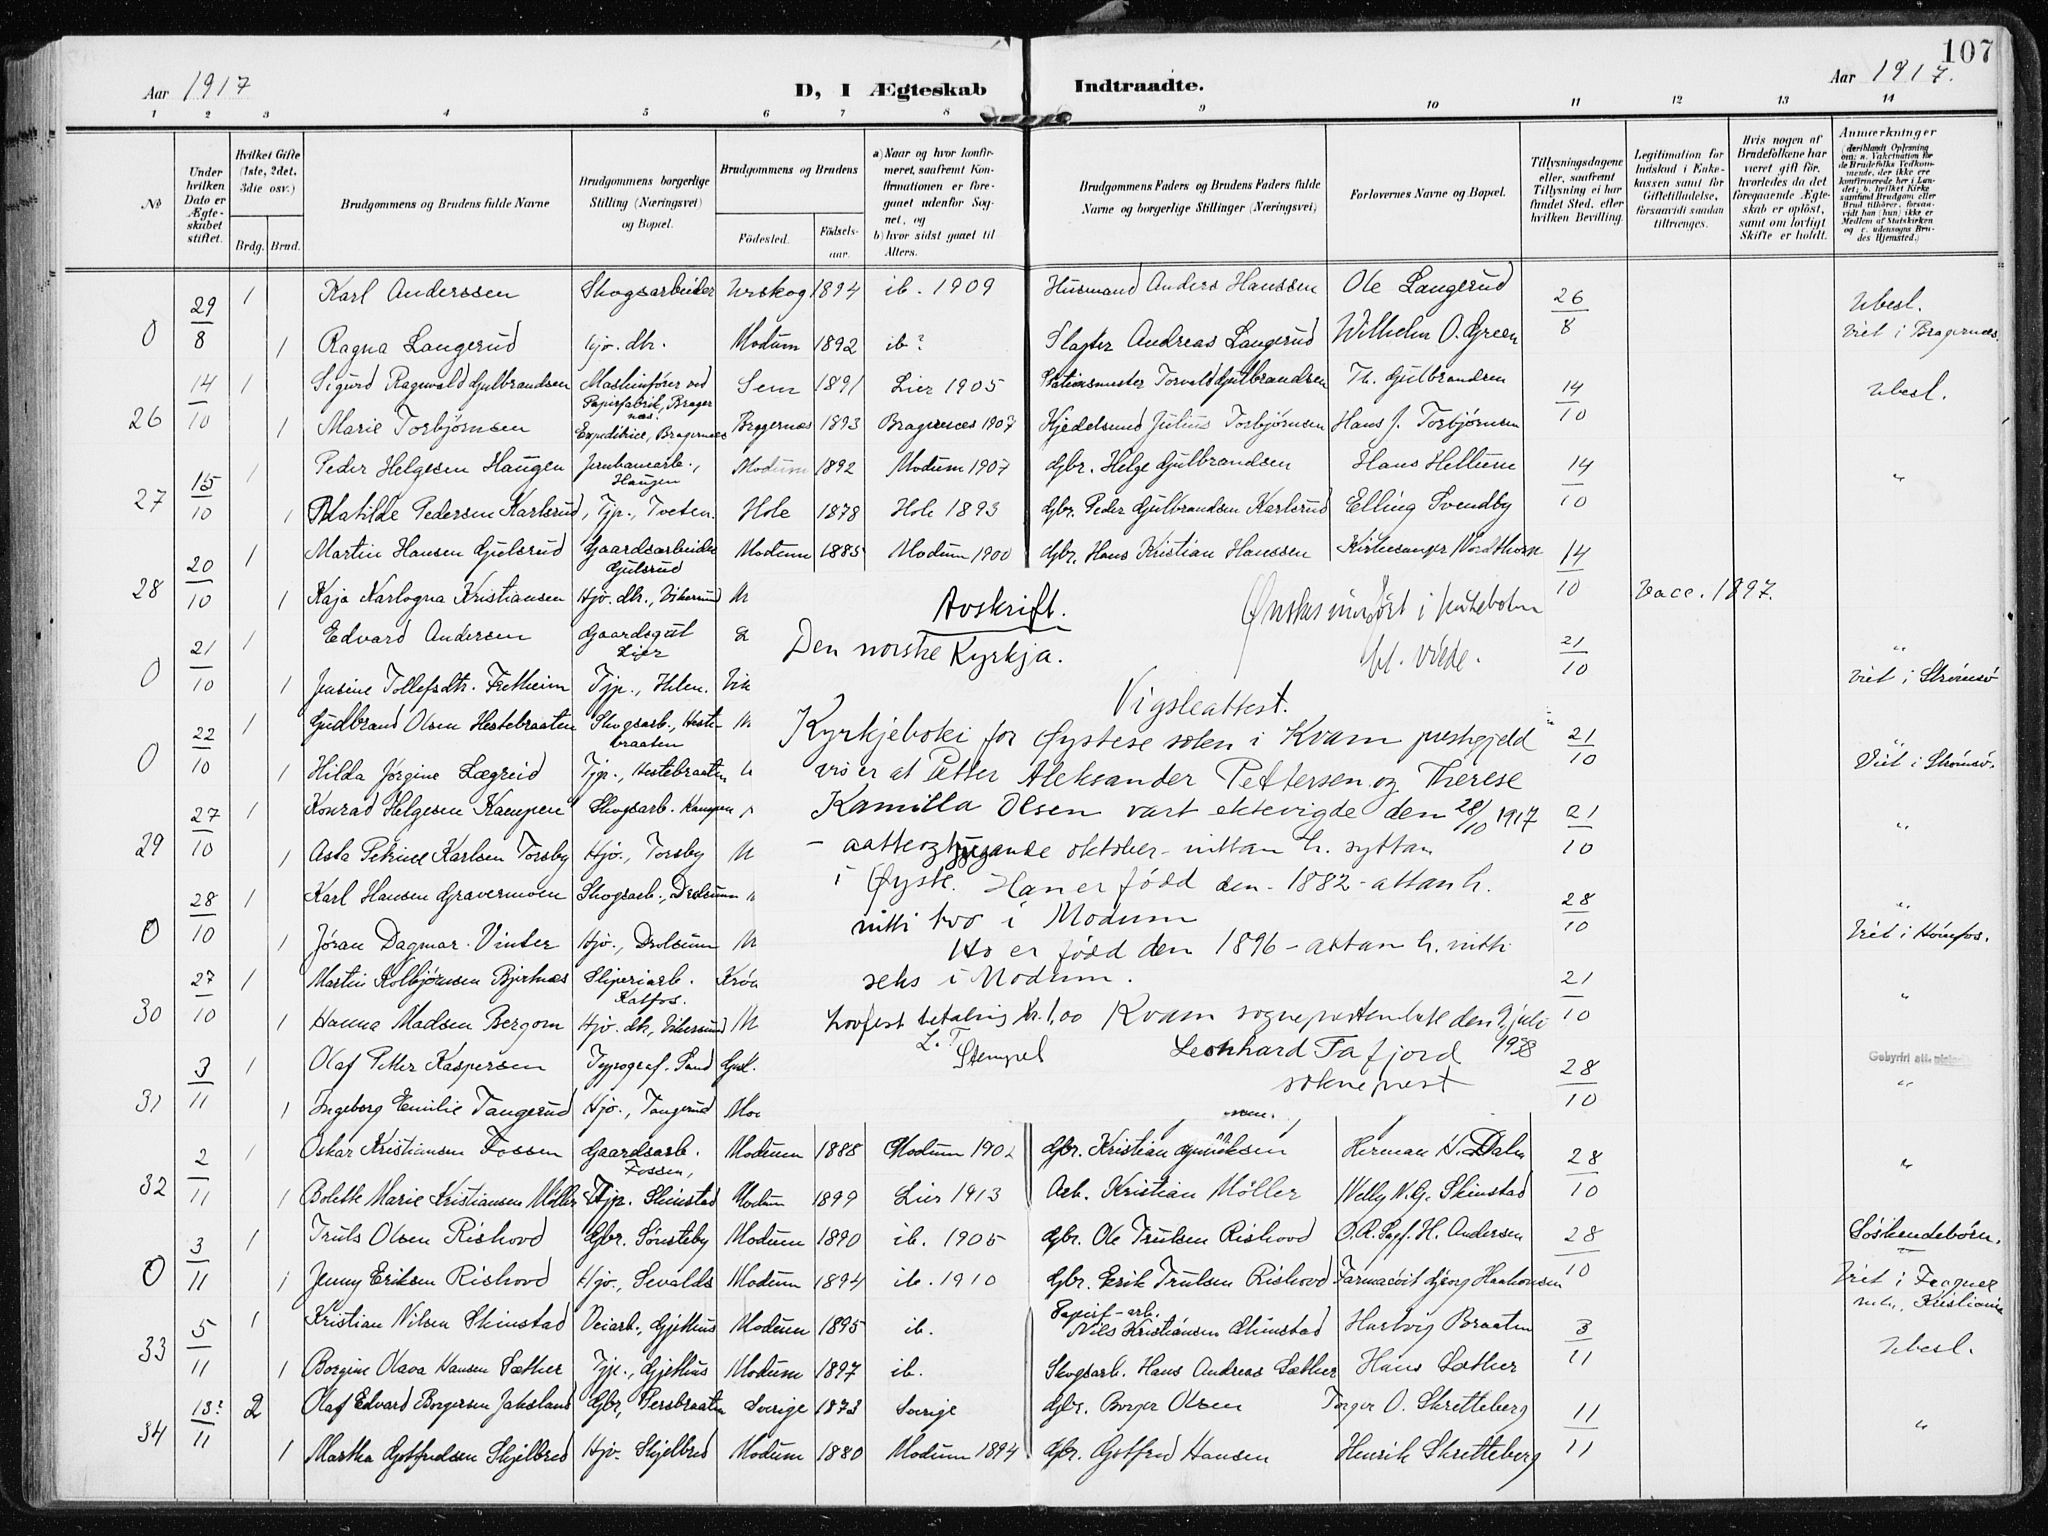 107
Aar 1917
D, I Ægteskab Indtraadte.
Aar 1917.
1 2 3 4 5 6 7 8 9 10 11 12 13 14
№
Under hvilken Dato er Ægteskabet stiftet.
Hvilket Gifte (1ste, 2det, 3die osv.)
Brdg. Brud.
Brudgommens og Brudens fulde Navne
Brudgommens borgerlige Stilling (Næringsvei) og Bopæl.
Brudgommens og Brudens
Fødested.
Fødselsaar.
a) Naar og hvor konfirmeret, saafremt Konfirmationen er foregaaet udenfor Sognet, og
b) hvor sidst gaaet til Alters.
Brudgommens Faders og Brudens Faders fulde Navne og borgerlige Stillinger (Næringsvei)
Forlovernes Navne og Bopæl.
Tillysningsdagene eller, saafremt Tillysning ei har fundet Sted, efter hvilken Bevilling.
Legitimation for Indskud i Enkekassen samt for Giftetilladelse, forsaavidt saadan tiltrænges.
Hvis nogen af Brudefolkene har været gift før, hvorledes da det foregaaende Ægteskab er opløst, samt om lovligt Skifte er holdt.
Anmærkninger (deriblandt Oplysning om: a. Vaccination for de Brudefolks Vedkommende, der ikke ere konfirmerede her i Landet; b. hvilket Kirkesamfund Brudgom eller Brud tilhører, forsaavidt han (hun) ikke er Medlem af Statskirken og c. udensogns Brudes Hjemsted.)
29/8 1 Karl Anderssen Skogsarbeider Urskog 1894 ib. 1909 Husmand Anders Hanssen Ole Langerud 26/8 Ubesl.
0 1 Ragna Langerud Hjv. dh. Modum 1892 ib? Slagter Andreas Langerud Wilhelm O. Green Viet i Bragernæs.
14/10 1 Sigurd Ragnvald Gulbrandsen Maskinfører ved Papirfabrik, Bragernæs. Sem 1891 Lier 1905 Stationsmester Torvald Gulbrandsen Th. Gulbrandsen 14/10 Ubesl.
26 1 Marie Torbjørnsen Expeditrice, Bragernæs Braggernæs 1893 Bragernæs 1907 Kjedelsmed Julius Torbjørnsen Hans J. Torbjørnsen
15/10 1 Peder Helgesen Haugen Jernbanearb., Haugen Modum 1892 Modum 1907 Gbr. Helge Gulbrandsen Hans Hellum 14/10 "
27 1 Matilde Pedersen Karlsrud, Tjp., Tveten. Hole 1878 Hole 1893 Gbr. Peder Gulbrandsen Karlsrud Elling Svendby
20/10 1 Martin Hansen Gulsrud Gaardsarbeider Gulsrud Modum 1885 Modum 1900 Gbr. Hans Kristian Hanssen Kirkesanger Nordthorn 14/10
28 1 Kaja Karlogna Kristiansen Hjv. dh., Vikersund M Vacc. 1897.
21/10 1 Edvard Andersen Gaardsgut Lier 21/10 "
0 1 Jensine Tollefsdtr. Fretheim Tjp., Ihlen. Vik Viet i Strømsø
22/10 1 Gudbrand Olsen Hestebraaten Skogsarb., Hestebraaten M 21/10 "
0 1 Hilda Jørgine Lægreid Tjp., Hestebraaten Viet i Strømsø.
27/10 1 Konrad Helgesen Kampen Skogsarb. Kampen 21/10 "
29 1 Asta Petrine Karlsen Torsby Hjv., Torsby M
28/10 1 Karl Hansen Gravermoen Skogsarb., Drolsum 28/10 "
0 1 Jøran Dagmar Vinter Hjv., Drolsum M Viet i Hønefos.
27/10 1 Martin Kolbjørnsen Bjertnæs Sliperiarb. Katfos. Krø 21/10 "
30 1 Hanna Madsen Bergom Hjv. dh., Vikersund M
3/11 1 Olaf Petter Kaspersen Typograf. Sand 28/10 "
31 1 Ingeborg Emilie Tangerud Hjv., Tangerud Mo
Avskrift.
Ønskes innført i kirkeboken
Den norske Kyrkja.
Vigsleattest.
Kyrkjeboki for Øystese sokn i Kvam prestgjeld
viser at Petter Aleksander Pettersen og Therese
Kamilla Olsen vart ektevigde den 28/10 1917
- aatteogtjugande oktober - nittan h. syttan
i Øyst. Han er fødd den - 1882 - attan h.
nitti tvo i Modum
Ho er fødd den 1896 - attan h. nitti
seks i Modum.
Lovfest betaling kr. 1,00 Kvam sogneprestembete den 9 juli 1938
Stempel Leonhard Tafjord
sokneprest
Gebyrfri att.
2/11 1 Oskar Kristiansen Fossen Gaardsarb. Fossen, Modum 1888 Modum 1902 Gbr. Kristian Herman H. Dalen 28/10 "
32 1 Bolette Marie Kristiansen Møller Tjp. Skinstad Modum 1899 Lier 1913 Arb. Kristian Møller Welly N. G. Skinstad
3/11 1 Truls Olsen Rishovd Gbr. Sønsteby Modum 1890 ib. 1905 Gbr. Ole Trulsen Rishovd O.R. Sagf. H. Andersen 28/10 Søskendebørn.
0 1 Jenny Eriksen Rishovd Hjv., Sevalds Modum 1894 ib. 1910 Gbr. Erik Trulsen Rishovd Farmacöit Georg Haakonsen Viet i Fragner mn., Kristiania
5/11 1 Kristian Nilsen Skinstad Veiarb., Gjethus Modum 1895 ib. Papirf-arb. Nils Kristiansen Skinstad Hartvig Braaten 3/11 Ubesl.
33 1 Borgine Olava Hansen Sæther Tjp., Gjethus Modum 1897 ib. Skogsarb. Hans Andreas Sæther Hans Sæther
13?/11 2 Olaf Edvard Borgersen Jaksland Gbr, Persbraaten Sverige 1873 Sverige Gbr. Borger Olsen Torger O. Skretteberg 11/11 "
34 1 Martha Gotfredsen Skjelbred Hjv. Skjelbred Modum 1880 Modum 1894 Gbr. Gotfred Hansen Henrik Skretteberg